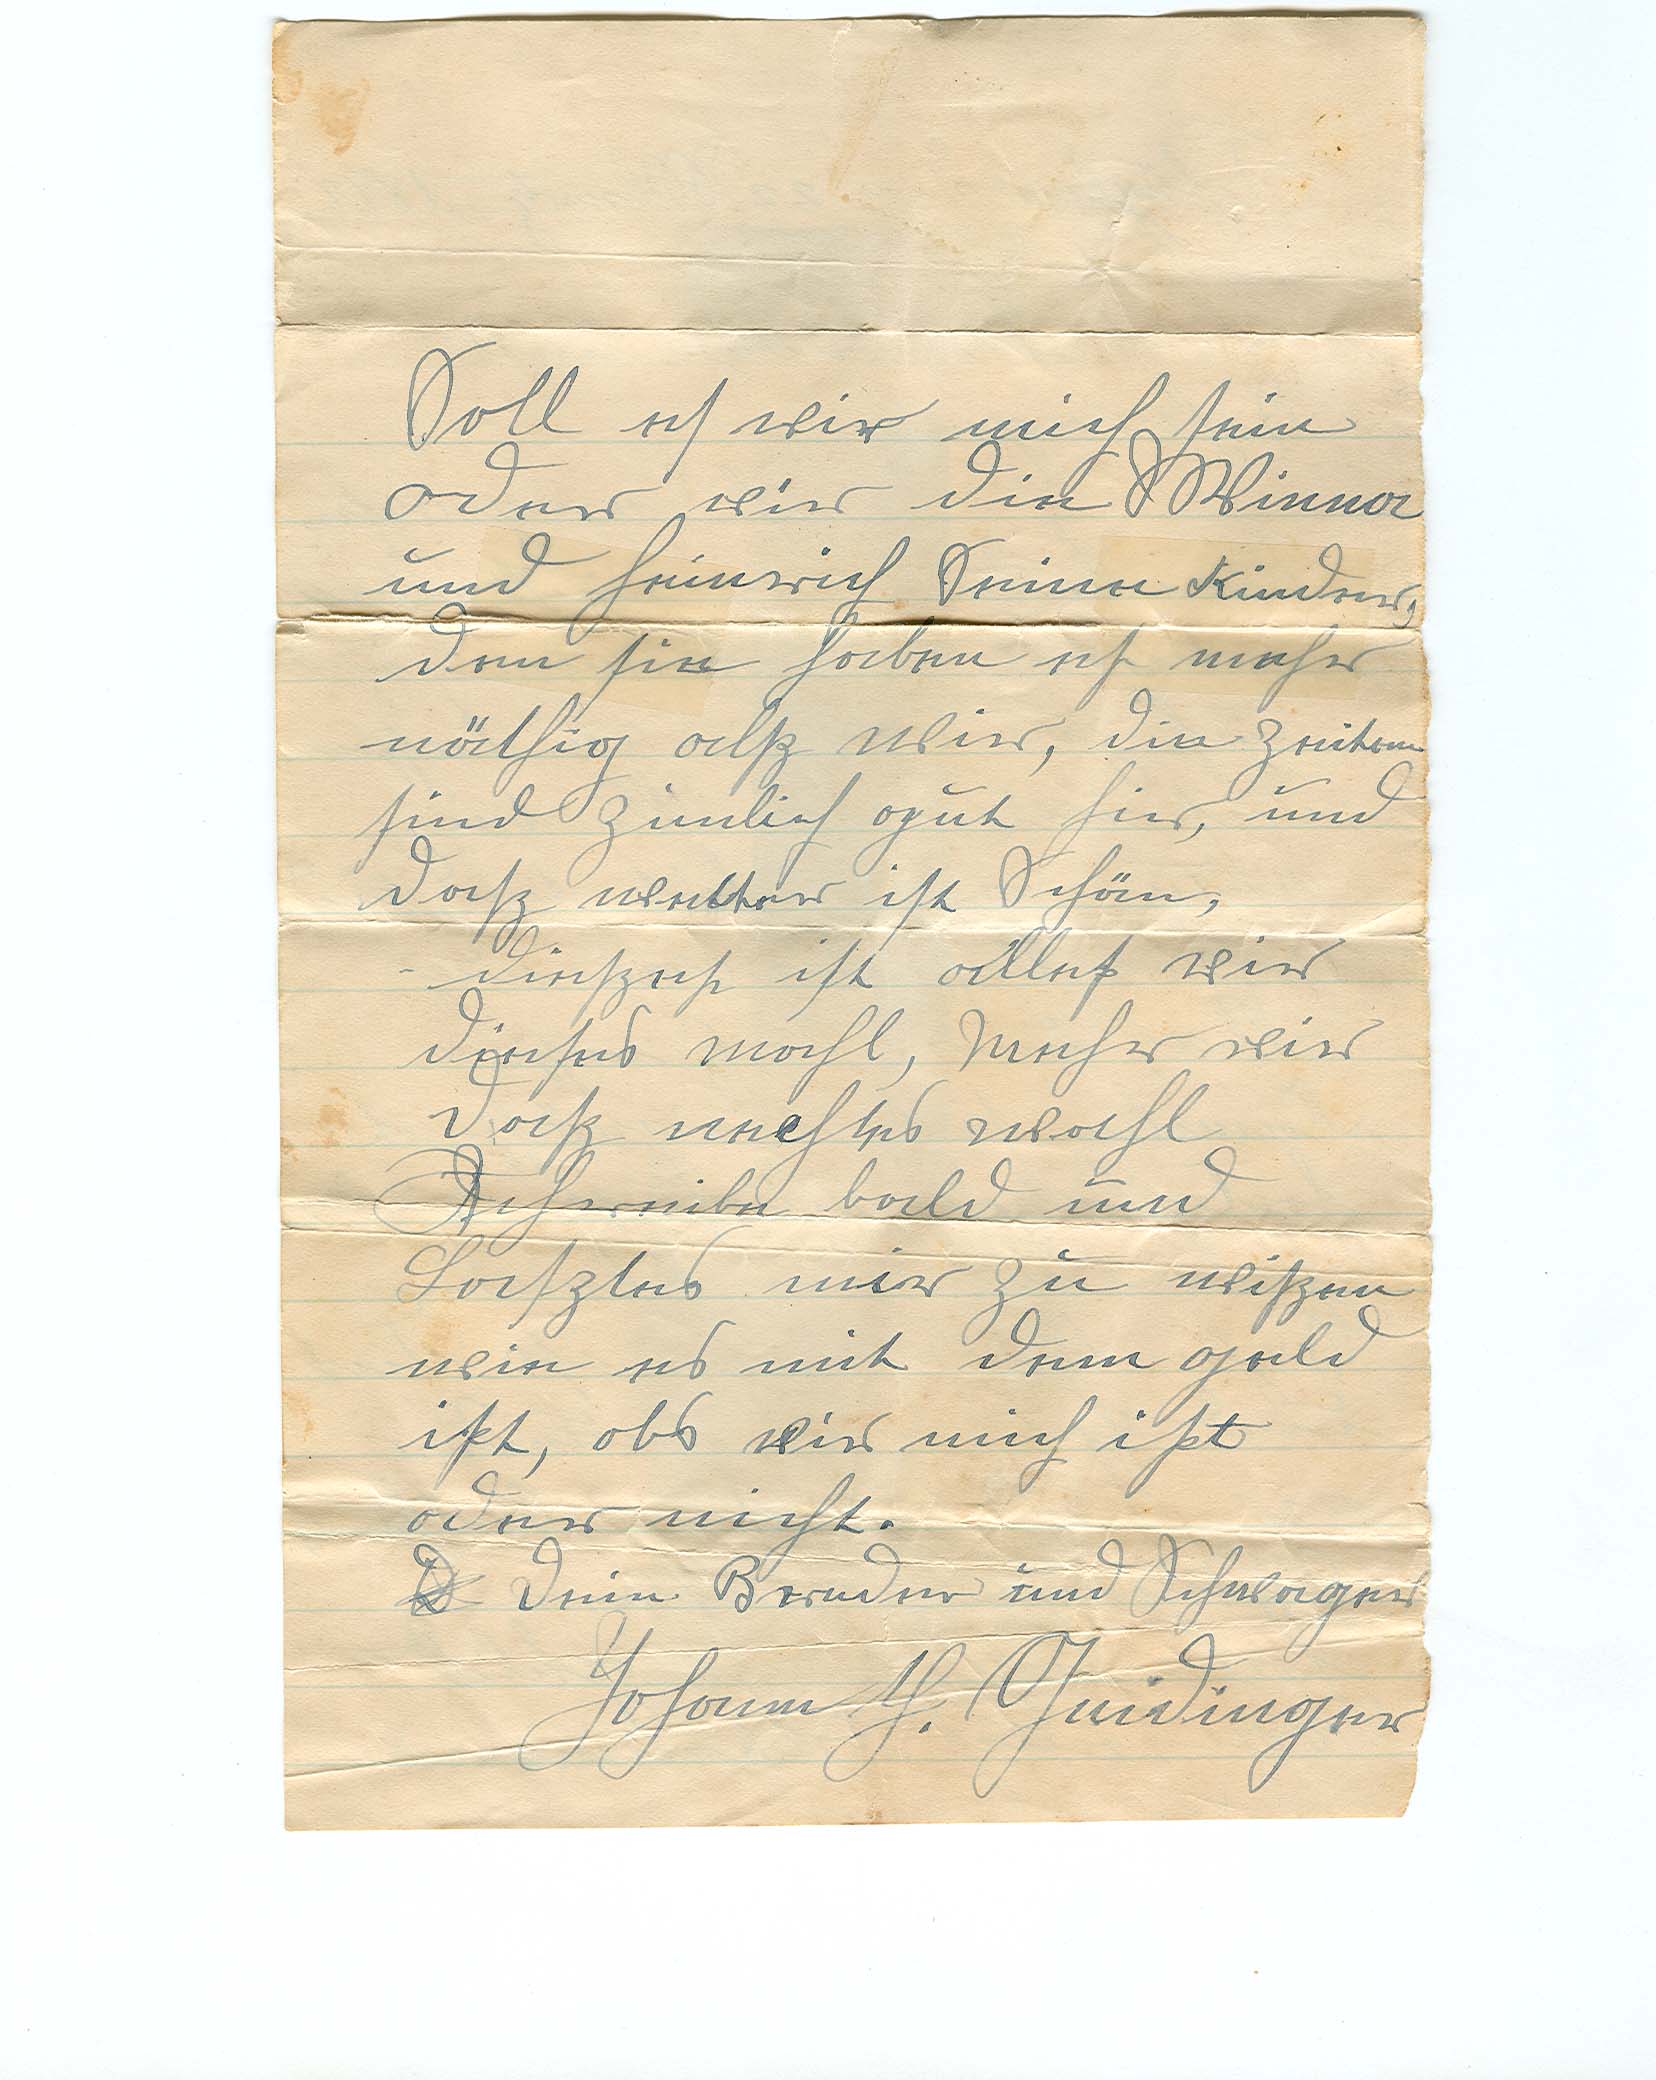 Soll es vir mich sein
oder vir die Minna
und heinrich Seine Kinder,
den sie haben es mehr
nöthig alß Wir, die Zeiten
sind Zimlich gut hier, und
daß wetter ist Schön,
dieszes ist alles vir
dieses mahl, Mehr vir
daß nechtes mahl
Schreibe bald und
Lasztes mir zu wiszen
wie es mit dem geld
ist, obs vir mich ist
oder nicht.
Dein Bruder und Schwager
Johann H. Geidinger